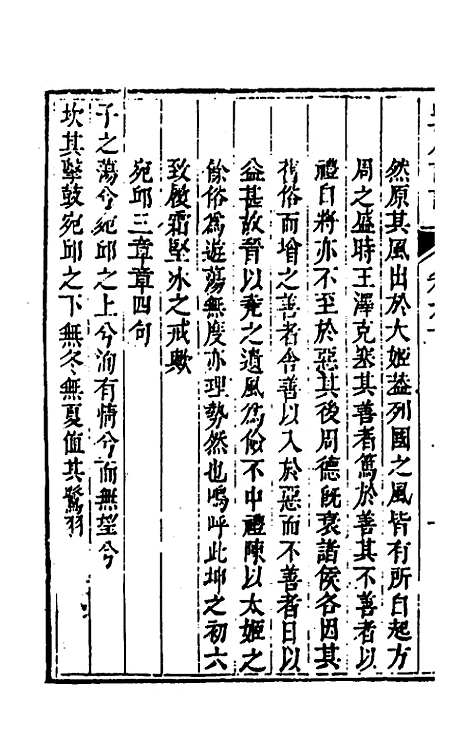 然原其風出於大姬葢列國之風皆有所自起方
周之盛時王澤克塞其善者篤於善其不善者以
禮自將亦不至於惡其後周德旣衰諸侯各因其
舊俗而增之善者舍善以入於惡而不善者日以
益甚故晉以堯之遺風爲儉不中禮陳以太姬之
餘俗爲遊蕩無度亦理勢然也嗚呼此坤之初六
致履霜堅冰之戒歟
宛邱三章章四句
子之蕩兮宛邱之上兮洵有情兮而無望兮
坎其擊鼓宛邱之下無冬無夏值其鷺羽